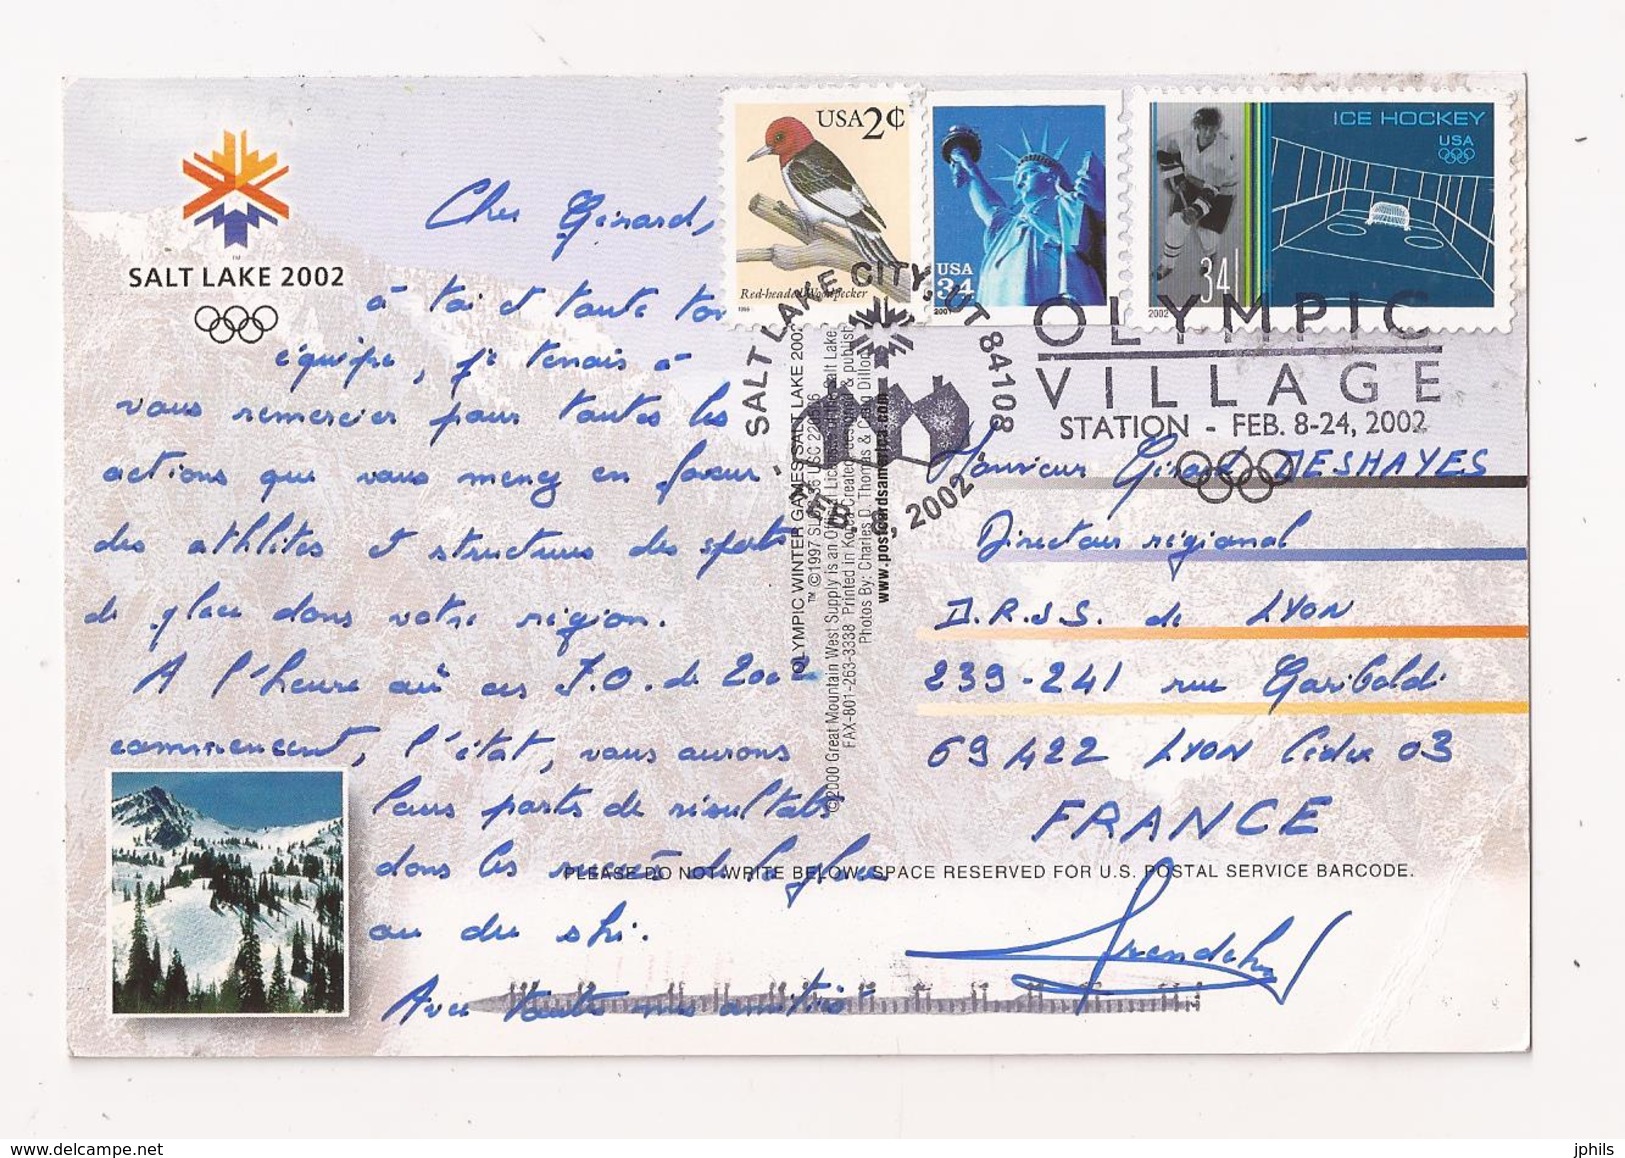 SALT LAKE 2002
Cher Gérard,
à toi et toute ton
équipe, je tenais à
vous remercier pour toutes les
actions que vous menez en faveur
des athlètes et structures des sports
de glace dans votre région.
A l'heure où ces J.O. de 2002
commencent, l'état, vous aurons
leurs parts de résultats
dans les succès de la glace
ou du ski.
Avec toutes mes amitiés
USA 2¢
Red-headed Woodpecker
1996
USA
34
2001
ICE HOCKEY
USA
34
2002
SALT LAKE CITY, UT 84108
FEB 8, 2002
OLYMPIC
VILLAGE
STATION - FEB. 8-24, 2002
OLYMPIC WINTER GAMES SALT LAKE 2002
™ ©1997 SLOC 36 USC 220506
©2000 Great Mountain West Supply is an Official Licensee of the Salt Lake
FAX-801-263-3338 Printed in Korea Created, designed & publish
Photos By: Charles D. Thomas & Craig Dillon
www.postcardsamerica.com
Monsieur Gérard DESHAYES
Directeur régional
D.R.J.S. de LYON
239-241 rue Garibaldi
69422 LYON Cedex 03
FRANCE
PLEASE DO NOT WRITE BELOW. SPACE RESERVED FOR U.S. POSTAL SERVICE BARCODE.
www.delcampe.net
jphils